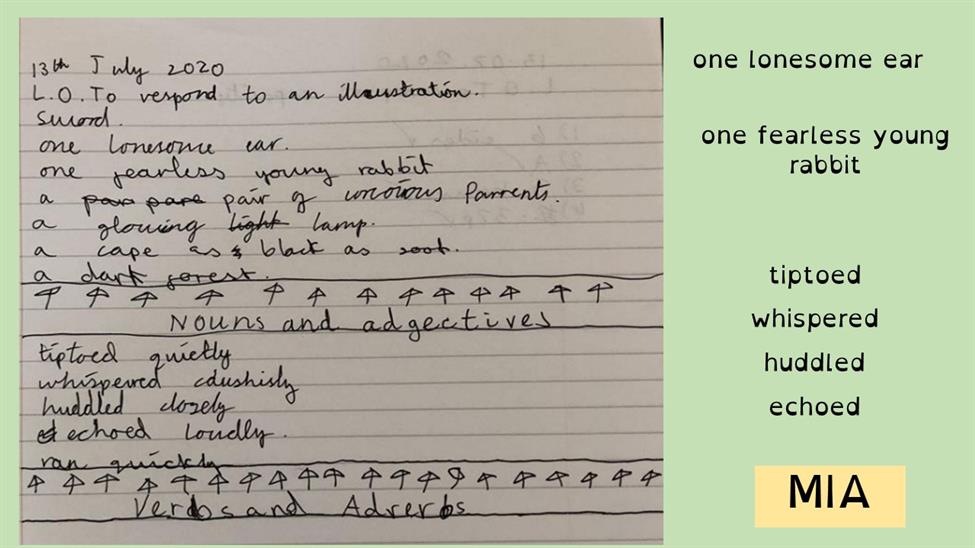 13th July 2020
L.O. To respond to an illustration.
Sword.
one lonesome ear.
one fearless young rabbit
a pair of Parrents.
a glowing light lamp.
a cape as black as soot.
a dark forest.
Nouns and adgectives
tiptoed quietly
whispered
huddled closely
echoed loudly.
ran quickly
Verbs and Adverbs
one lonesome ear
one fearless young
rabbit
tiptoed
whispered
huddled
echoed
MIA